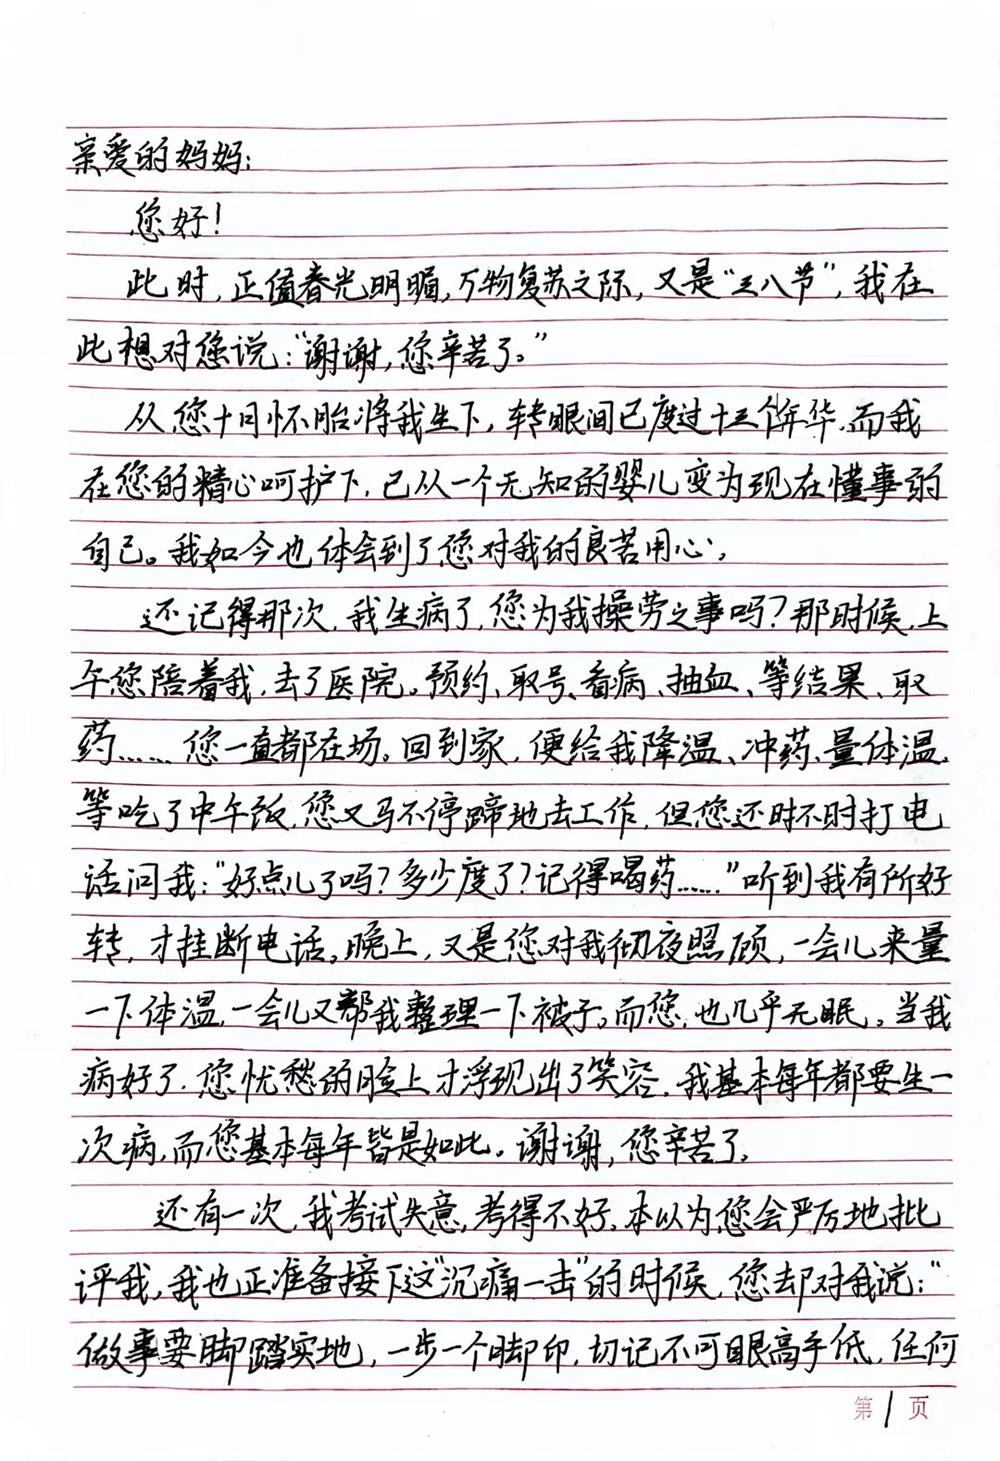 亲爱的妈妈：
您好！
此时，正值春光明媚，万物复苏之际，又是“三八节”，我在
此想对您说：“谢谢，您辛苦了。”
从您十月怀胎将我生下，转眼间已度过十三个年华，而我
在您的精心呵护下，已从一个无知的婴儿变为现在懂事的
自己。我如今也体会到了您对我的良苦用心。
还记得那次，我生病了，您为我操劳之事吗？那时候，上
午您陪着我，去了医院。预约、取号、看病、抽血、等结果、取
药……您一直都在场。回到家，便给我降温、冲药、量体温。
等吃了中午饭，您又马不停蹄地去工作，但您还时不时打电
话问我：“好点儿了吗？多少度了？记得喝药……”听到我有所好
转，才挂断电话。晚上，又是您对我彻夜照顾，一会儿来量
一下体温，一会儿又帮我整理一下被子。而您，也几乎无眠。当我
病好了，您忧愁的脸上才浮现出了笑容，我基本每年都要生一
次病，而您基本每年皆是如此。谢谢，您辛苦了。
还有一次，我考试失意，考得不好，本以为您会严厉地批
评我，我也正准备接下这“沉痛一击”的时候，您却对我说：“
做事要脚踏实地，一步一个脚印，切记不可眼高手低，任何
第1页